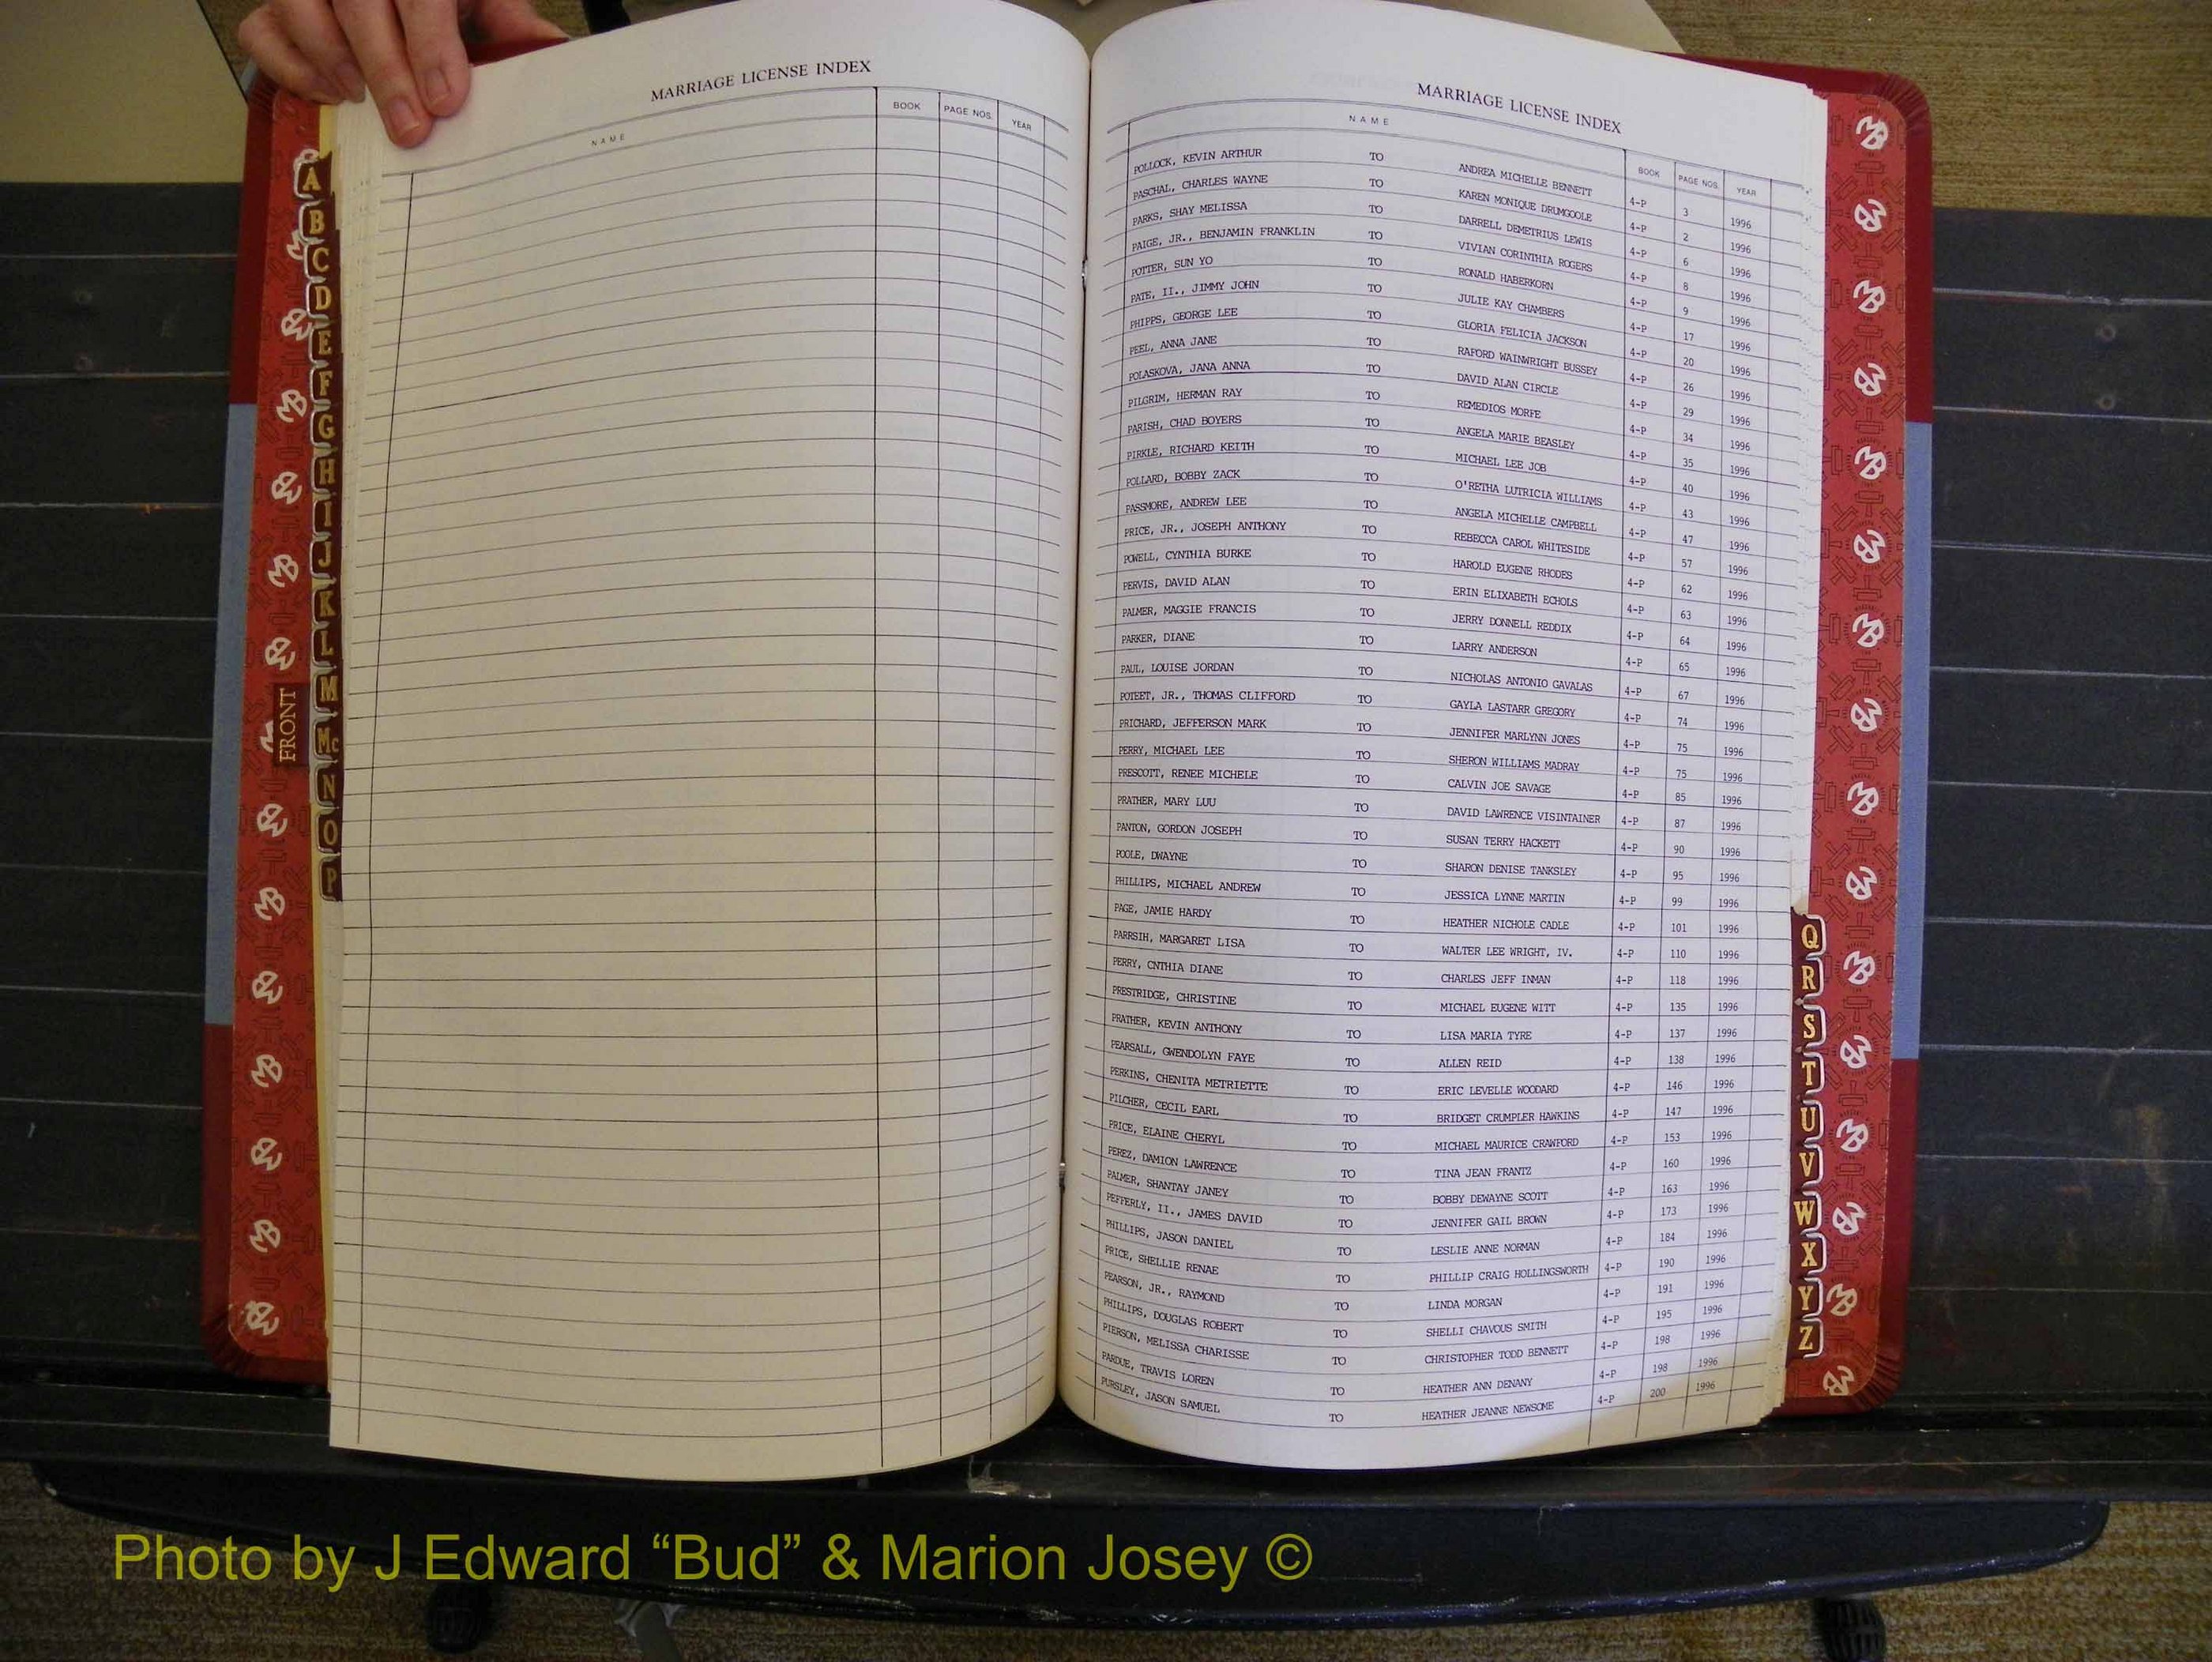 MARRIAGE LICENSE INDEX
NAME BOOK PAGE NOS. YEAR
A
B
C
D
E
F
G
H
I
J
K
L
M
Mc
N
O
P
FRONT
MARRIAGE LICENSE INDEX
NAME BOOK PAGE NOS. YEAR
POLLOCK, KEVIN ARTHUR TO ANDREA MICHELLE BENNETT 4-P 3 1996
PASCHAL, CHARLES WAYNE TO KAREN MONIQUE DRUMGOOLE 4-P 2 1996
PARKS, SHAY MELISSA TO DARRELL DEMETRIUS LEWIS 4-P 6 1996
PAIGE, JR., BENJAMIN FRANKLIN TO VIVIAN CORINTHIA ROGERS 4-P 8 1996
POTTER, SUN YO TO RONALD HABERKORN 4-P 9 1996
PATE, II., JIMMY JOHN TO JULIE KAY CHAMBERS 4-P 17 1996
PHIPPS, GEORGE LEE TO GLORIA FELICIA JACKSON 4-P 20 1996
PEEL, ANNA JANE TO RAFORD WAINWRIGHT BUSSEY 4-P 26 1996
POLASKOVA, JANA ANNA TO DAVID ALAN CIRCLE 4-P 29 1996
PILGRIM, HERMAN RAY TO REMEDIOS MORFE 4-P 34 1996
PARISH, CHAD BOYERS TO ANGELA MARIE BEASLEY 4-P 35 1996
PIRKLE, RICHARD KEITH TO MICHAEL LEE JOB 4-P 40 1996
POLLARD, BOBBY ZACK TO O'RETHA LUTRICIA WILLIAMS 4-P 43 1996
PASSMORE, ANDREW LEE TO ANGELA MICHELLE CAMPBELL 4-P 47 1996
PRICE, JR., JOSEPH ANTHONY TO REBECCA CAROL WHITESIDE 4-P 57 1996
POWELL, CYNTHIA BURKE TO HAROLD EUGENE RHODES 4-P 62 1996
PERVIS, DAVID ALAN TO ERIN ELIXABETH ECHOLS 4-P 63 1996
PALMER, MAGGIE FRANCIS TO JERRY DONNELL REDDIX 4-P 64 1996
PARKER, DIANE TO LARRY ANDERSON 4-P 65 1996
PAUL, LOUISE JORDAN TO NICHOLAS ANTONIO GAVALAS 4-P 67 1996
POTEET, JR., THOMAS CLIFFORD TO GAYLA LASTARR GREGORY 4-P 74 1996
PRICHARD, JEFFERSON MARK TO JENNIFER MARLYNN JONES 4-P 75 1996
PERRY, MICHAEL LEE TO SHERON WILLIAMS MADRAY 4-P 75 1996
PRESCOTT, RENEE MICHELE TO CALVIN JOE SAVAGE 4-P 85 1996
PRATHER, MARY LUU TO DAVID LAWRENCE VISINTAINER 4-P 87 1996
PANTON, GORDON JOSEPH TO SUSAN TERRY HACKETT 4-P 90 1996
POOLE, DWAYNE TO SHARON DENISE TANKSLEY 4-P 95 1996
PHILLIPS, MICHAEL ANDREW TO JESSICA LYNNE MARTIN 4-P 99 1996
PAGE, JAMIE HARDY TO HEATHER NICHOLE CADLE 4-P 101 1996
PARRSIH, MARGARET LISA TO WALTER LEE WRIGHT, IV. 4-P 110 1996
PERRY, CNTHIA DIANE TO CHARLES JEFF INMAN 4-P 118 1996
PRESTRIDGE, CHRISTINE TO MICHAEL EUGENE WITT 4-P 135 1996
PRATHER, KEVIN ANTHONY TO LISA MARIA TYRE 4-P 137 1996
PEARSALL, GWENDOLYN FAYE TO ALLEN REID 4-P 138 1996
PERKINS, CHENITA METRIETTE TO ERIC LEVELLE WOODARD 4-P 146 1996
PILCHER, CECIL EARL TO BRIDGET CRUMPLER HAWKINS 4-P 147 1996
PRICE, ELAINE CHERYL TO MICHAEL MAURICE CRAWFORD 4-P 153 1996
PEREZ, DAMION LAWRENCE TO TINA JEAN FRANTZ 4-P 160 1996
PALMER, SHANTAY JANEY TO BOBBY DEWAYNE SCOTT 4-P 163 1996
PEFFERLY, II., JAMES DAVID TO JENNIFER GAIL BROWN 4-P 173 1996
PHILLIPS, JASON DANIEL TO LESLIE ANNE NORMAN 4-P 184 1996
PRICE, SHELLIE RENAE TO PHILLIP CRAIG HOLLINGSWORTH 4-P 190 1996
PEARSON, JR., RAYMOND TO LINDA MORGAN 4-P 191 1996
PHILLIPS, DOUGLAS ROBERT TO SHELLI CHAVOUS SMITH 4-P 195 1996
PIERSON, MELISSA CHARISSE TO CHRISTOPHER TODD BENNETT 4-P 198 1996
PARDUE, TRAVIS LOREN TO HEATHER ANN DENANY 4-P 198 1996
PURSLEY, JASON SAMUEL TO HEATHER JEANNE NEWSOME 4-P 200 1996
Q
R
S
T
U
V
W
X
Y
Z
Photo by J Edward “Bud” & Marion Josey ©